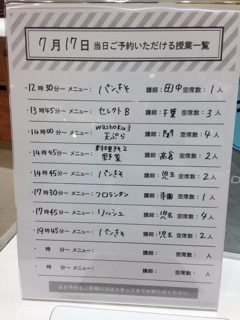 7月17日 当日ご予約いただける授業一覧
・12時30分〜 メニュー: パンきそ 講師: 田中 空席数: 1人
・13時45分〜 メニュー: セレクトB 講師: 千葉 空席数: 3人
・14時00分〜 メニュー: washoku3 天ぷら 講師: 空席数: 4人
・14時45分〜 メニュー: 料理きそ2 野菜 講師: 高倉 空席数: 2人
・14時45分〜 メニュー: パンきそ 講師: 児玉 空席数: 2人
・17時30分〜 メニュー: フロランタン 講師: 寺園 空席数: 1人
・17時45分〜 メニュー: リュッシュ 講師: 児玉 空席数: 4人
・19時45分〜 メニュー: パンきそ 講師: 児玉 空席数: 2人
・ 時 分〜 メニュー: 講師: 空席数: 人
・ 時 分〜 メニュー: 講師: 空席数: 人
当日予約をご希望の方はスタッフまでお知らせください